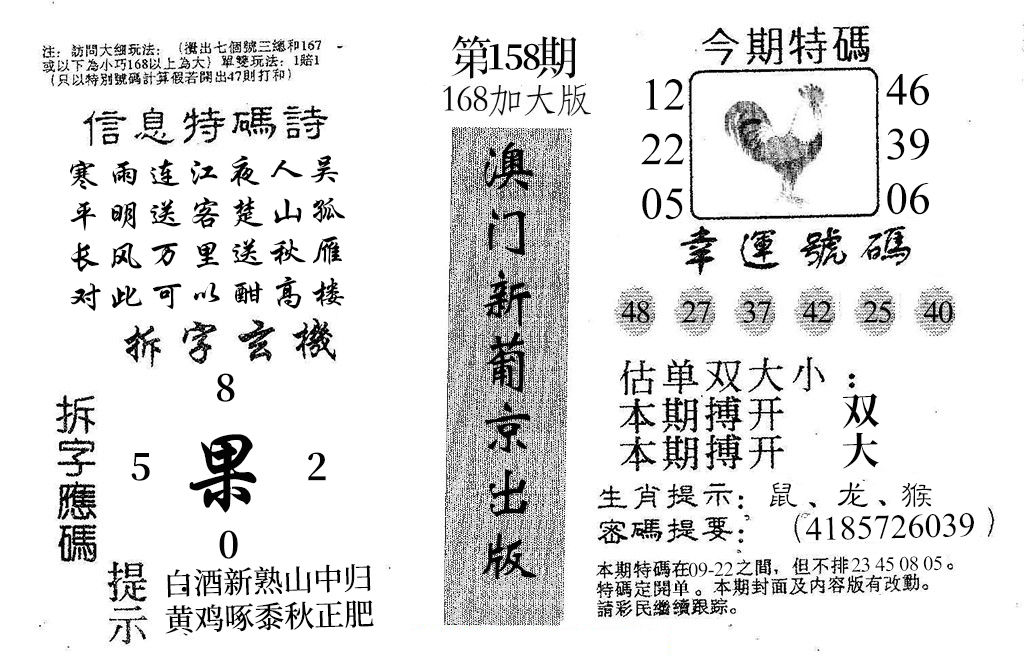 注：訪問大细玩法：（攪出七個號三總和167
或以下為小巧168以上為大）單雙玩法：1賠1
（只以特別號碼計算假若開出47則打和）
信息特碼詩
寒雨连江夜人吴
平明送客楚山孤
长风万里送秋雁
对此可以酣高楼
拆字玄機
拆字應碼
8
5 果 2
0
提示
白酒新熟山中归
黄鸡啄黍秋正肥
第158期
168加大版
澳门新葡京出版
今期特碼
12 46
22 39
05 06
幸運號碼
48 27 37 42 25 40
估单双大小：
本期搏开 双
本期搏开 大
生肖提示：鼠、龙、猴
密碼提要：（4185726039）
本期特碼在09-22之間，但不排23 45 08 05。
特碼定開单。本期封面及内容版有改動。
請彩民繼續跟踪。